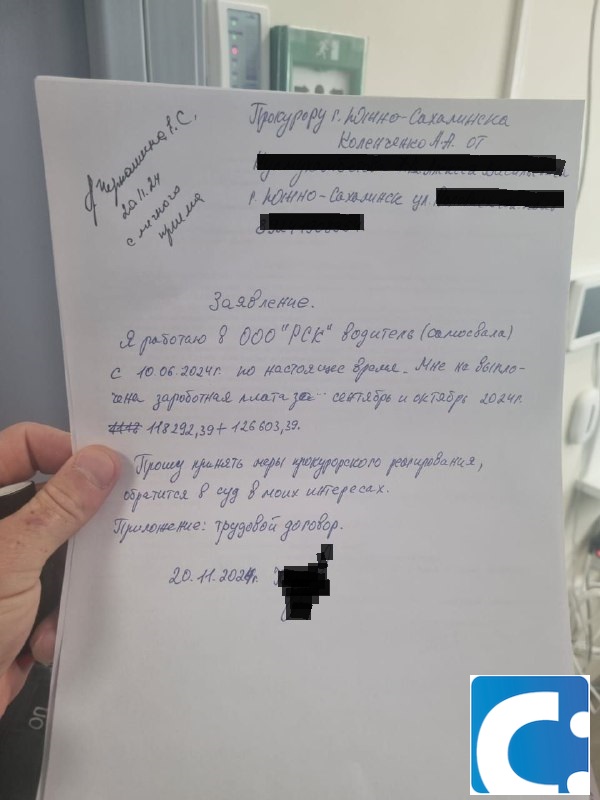 20.11.24
с личного
приема
Прокурору г. Южно-Сахалинска
Коленченко А.А. от
г. Южно-Сахалинск ул.
Заявление.
Я работаю в ООО "РСК" водитель (самосвала)
с 10.06.2024г. по настоящее время. Мне не выпло-
чена зароботная плата за сентябрь и октябрь 2024г.
118292,39+126603,39.
Прошу принять меры прокурорского реагирования,
обратится в суд в моих интересах.
Приложение: трудовой договор.
20.11.2024г.